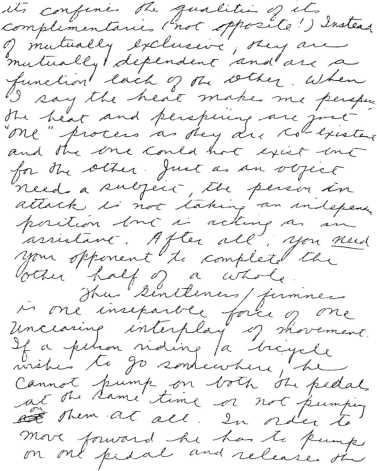 its confines the qualities of its
complimentaries (not opposite!) Instead
of mutually exclusive, they are
mutually dependent and are a
function each of the other. When
I say the heat makes me perspire
the heat and perspiring are just
"one" process as they are co-existent
and the one could not exist but
for the other. Just as an object
need a subject, the person in
attack is not taking an independen
position but is acting as an
assistant. After all, you need
your opponent to complete the
other half of a whole.
Thus Gentleness/firmness
is one inseparble force of one
unceasing interplay of movement.
If a person riding a bicycle
wishes to go somewhere, he
cannot pump on both the pedals
at the same time or not pumping
on them at all. In order to
move forward he has to pump
on one pedal and release the